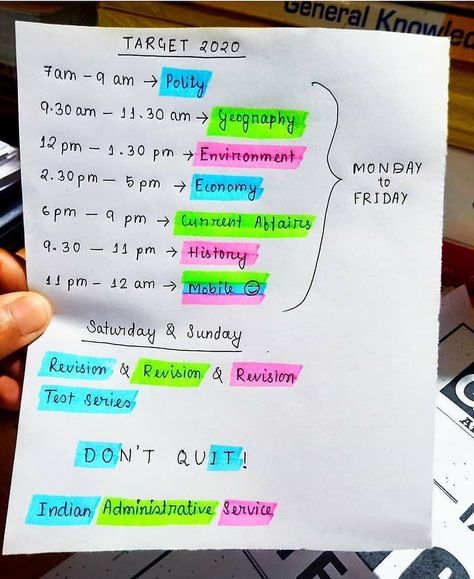 General Knowled
TARGET 2020
7am – 9 am → Polity
9.30 am – 11.30 am → Geography
12 pm – 1.30 pm → Environment
2.30 pm – 5 pm → Economy
6pm – 9 pm → Current Affairs
9.30 – 11 pm → History
11 pm – 12 am → Mobile ☺
MONDAY
to
FRIDAY
Saturday & Sunday
Revision & Revision & Revision
Test series
DON'T QUIT!
Indian Administrative Service